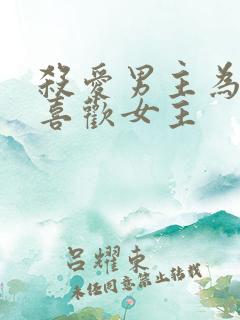 殺愛男主為
喜歡女主
呂耀東
未经同意禁止转载